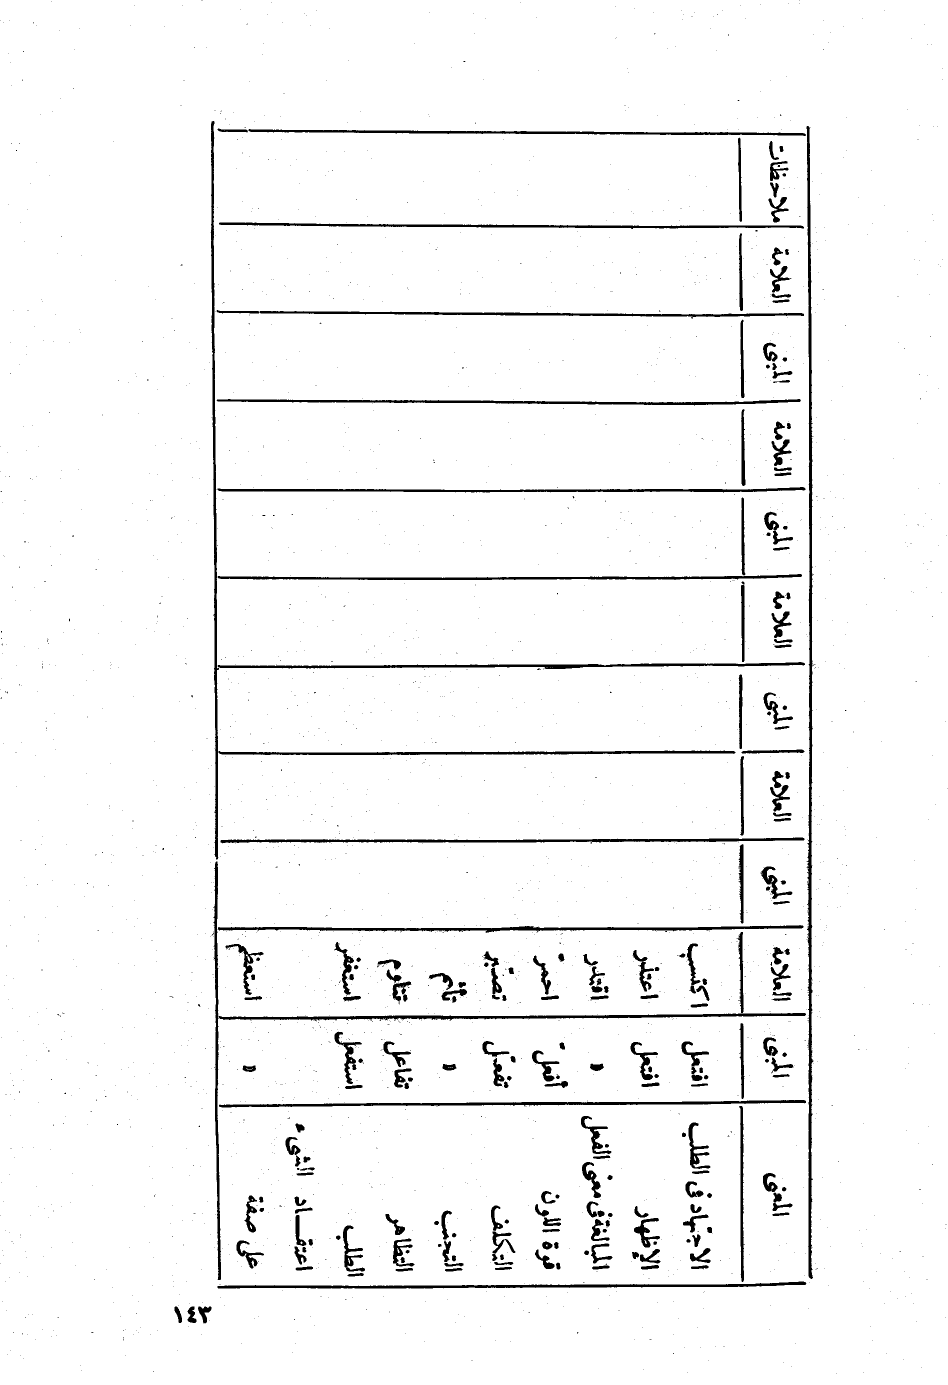 المعنى المبنى العلامة المبنى العلامة المبنى العلامة المبنى العلامة المبنى العلامة ملاحظات
الاجتهاد فى الطلب افتعل اكتسب
الإظهار افتعل اعتذر
المبالغة فى معنى الفعل » اقتدر
قوة اللون أفعلّ احمرّ
التكلف تفعّل تصبّر
التجنب » تأثم
التظاهر تفاعل تناوم
الطلب استفعل استغفر
اعتقــاد الشىء
على صفة » استعظم
١٤٣